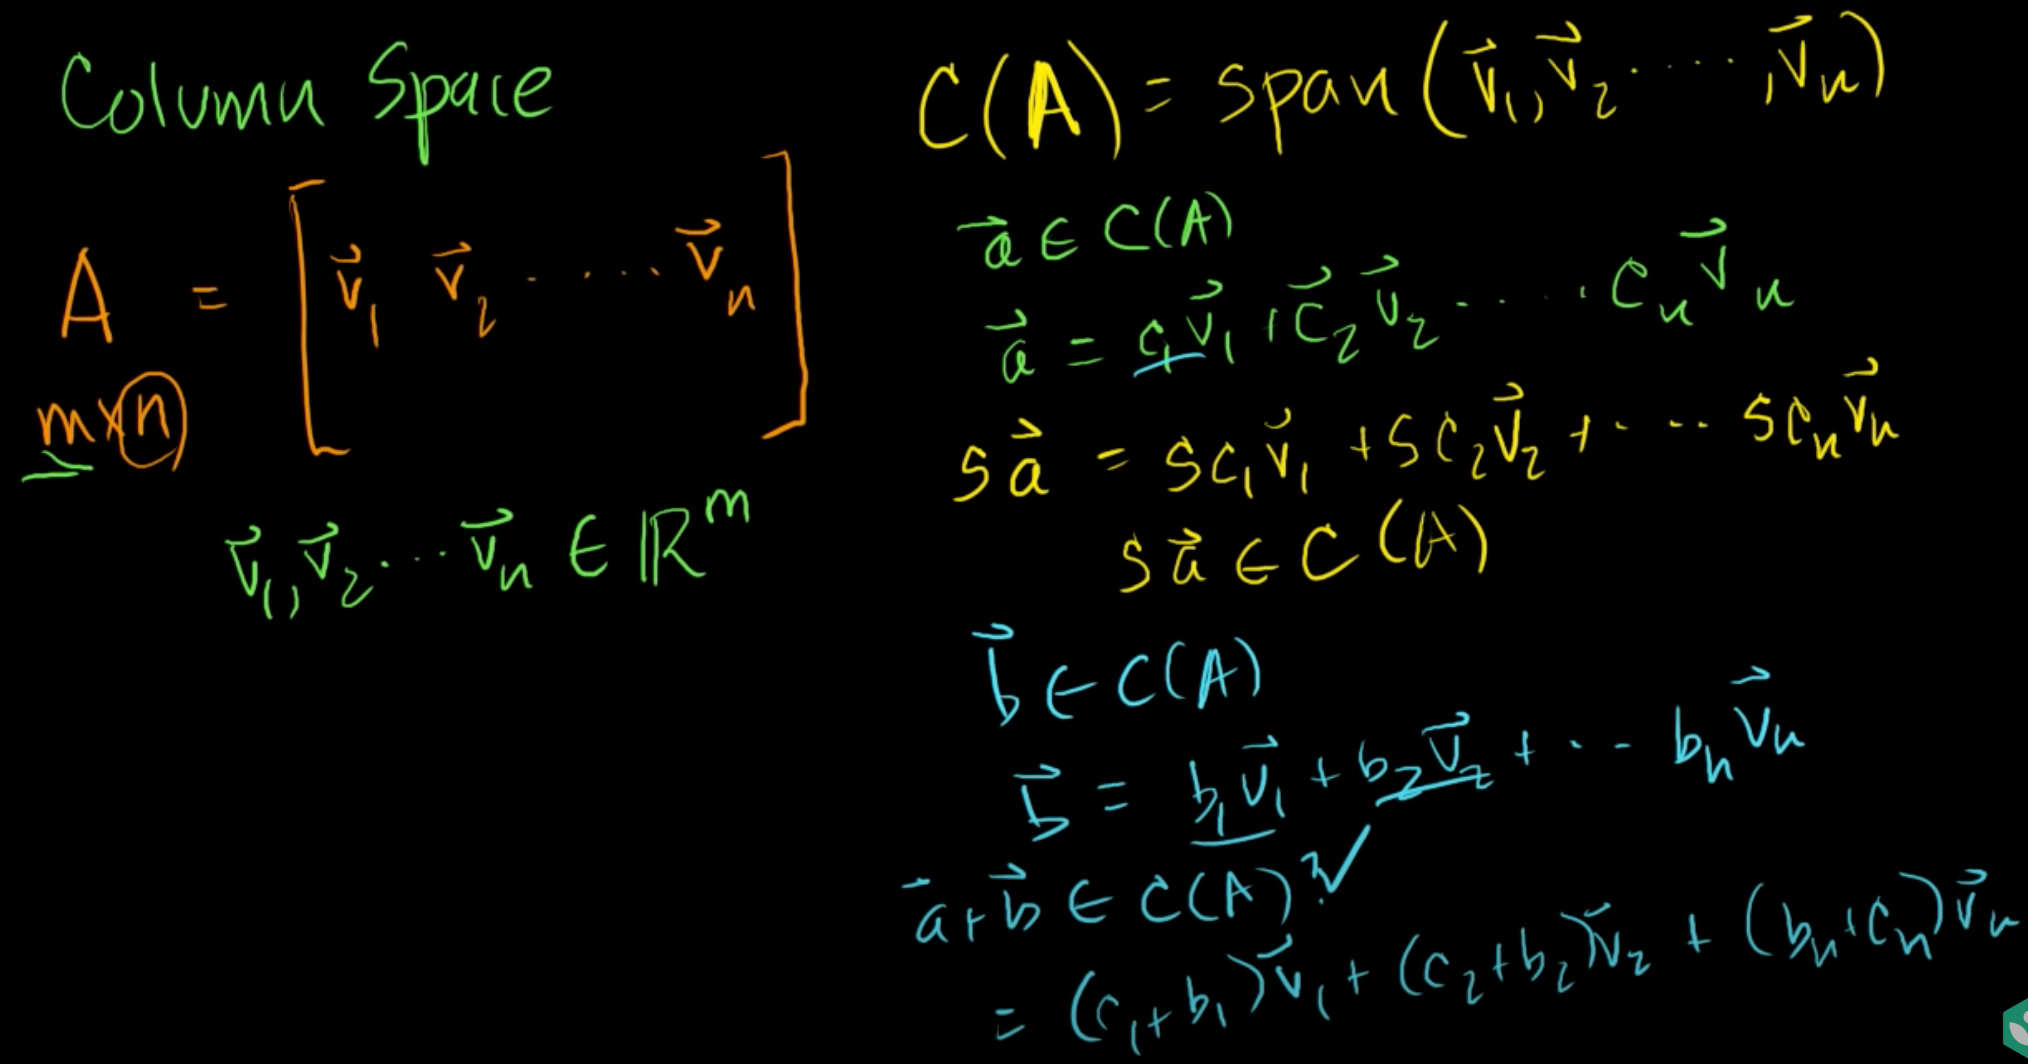 Column Space
A = [ v⃗₁ v⃗₂ ..... v⃗ₙ ]
m×n
v⃗₁, v⃗₂ ..... v⃗ₙ ∈ ℝᵐ
C(A) = span(v⃗₁, v⃗₂ ...... , v⃗ₙ)
a⃗ ∈ C(A)
a⃗ = c₁v⃗₁ + c⃗₂v⃗₂ ..... cₙv⃗ₙ
sa⃗ = sc₁v⃗₁ + sc₂v⃗₂ + .... scₙv⃗ₙ
sa⃗ ∈ C(A)
b⃗ ∈ C(A)
b⃗ = b₁v⃗₁ + b₂v⃗₂ + ... bₙv⃗ₙ
a⃗ + b⃗ ∈ C(A)? ✓
= (c₁+b₁)v⃗₁ + (c₂+b₂)v⃗₂ + (bₙ+cₙ)v⃗ₙ